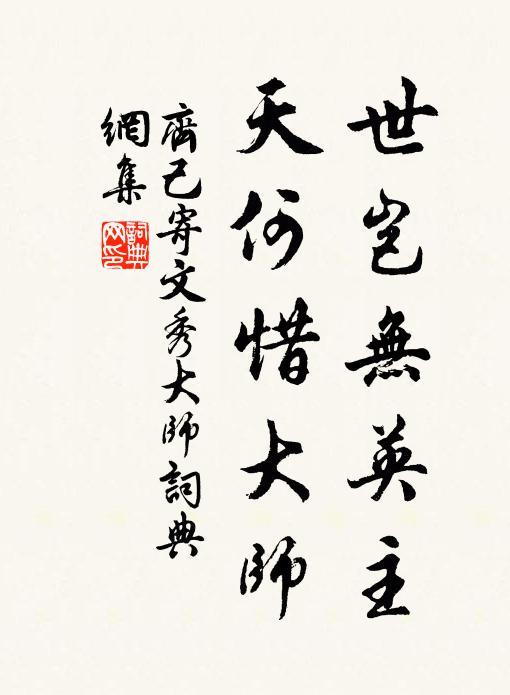 世岂無英主
天何惜大師
齊己寄文秀大師詞典
網集
詞典
网印